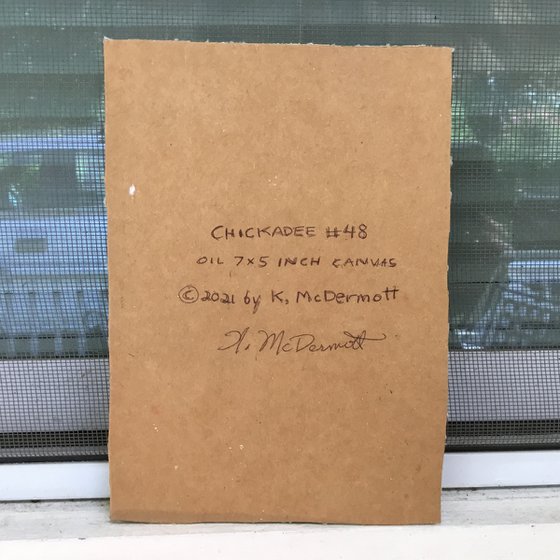 CHICKADEE #48
OIL 7x5 INCH CANVAS
© 2021 by K. McDermott
K. McDermott